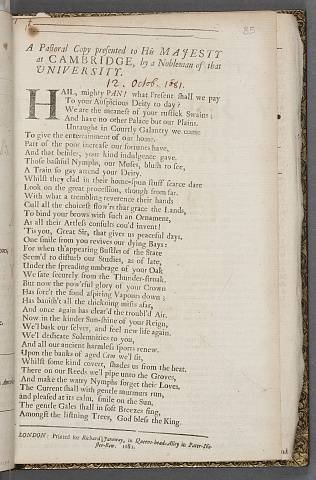 85
A Pastoral Copy presented to His MAJESTY
at CAMBRIDGE, by a Nobleman of that
UNIVERSITY.
12. Octob. 1681.
HAil, mighty PAN! what Present shall we pay
To your Auspicious Deity to day?
We are the meanest of your russick Swains;
And have no other Palace but our Plains.
Untaught in Courtly Galantry we come
To give the entertainment of our home.
Part of the poor increase our fortunes have,
And that besides, your kind indulgence gave.
Those bashful Nymphs, our Muses, blush to see,
A Train so gay attend your Deity.
Whilst they clad in their home-spun stuff scarce dare
Look on the great procession, though from far.
With what a trembling reverence their hands
Cull all the choicest flow'rs that grace the Lands,
To bind your brows with such an Ornament,
As all their Artless consults cou'd invent!
'Tis you, Great Sir, that gives us peaceful days,
One smile from you revives our dying Bays:
For when th'appearing Bustles of the State
Seem'd to disturb our Studies, as of late,
Under the spreading umbrage of your Oak
We sate securely from the Thunder-stroak.
But now the pow'rful glory of your Crown
Has forc't the fond aspiring Vapours down;
Has banish't all the thickning mists afar,
And once again has clear'd the troubl'd Air.
Now in the kinder Sun-shine of your Reign,
We'll bask our selves, and feel new life again.
We'll dedicate Solemnities to you,
And all our ancient harmless sports renew.
Upon the banks of aged Cam we'll sit,
Whilst some kind covert, shades us from the heat.
There on our Reeds we'll pipe unto the Groves,
And make the watry Nymphs forget their Loves.
The Current shall with gentle murmurs run,
and pleased at its calm, smile on the Sun.
The gentle Gales shall in soft Breezes sing,
Amongst the listning Trees, God bless the King.
LONDON: Printed for Richard Janeway, in Queens-head-Alley in Pater-No-
ster-Row. 1681.